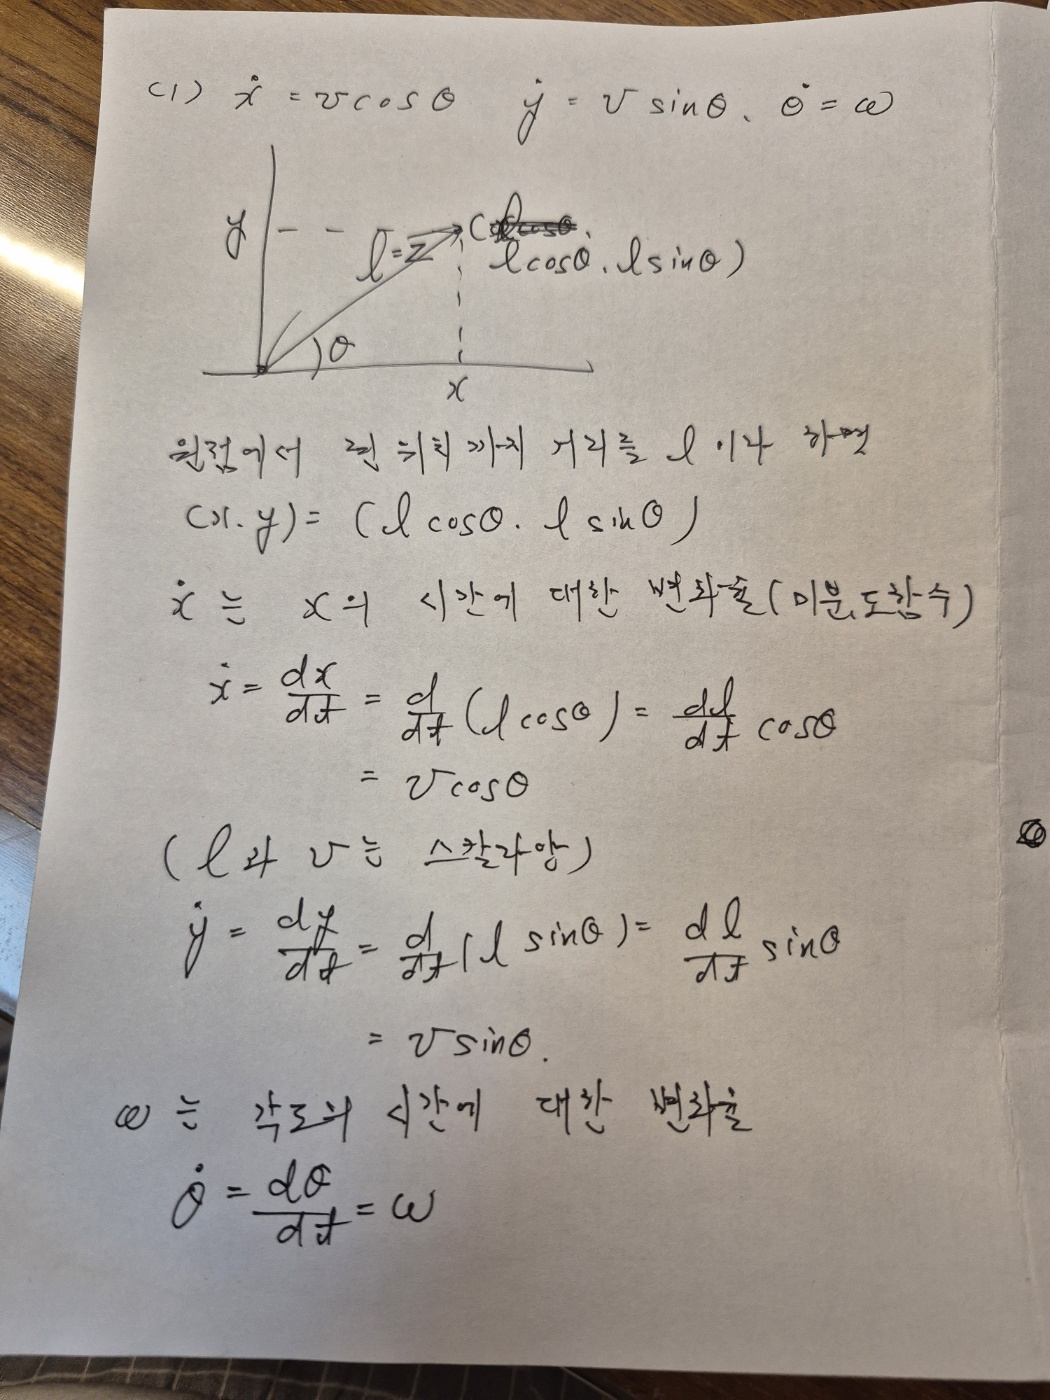 (1) ẋ = v cosθ ẏ = v sinθ. θ̇ = ω
y
l=z
(
l cosθ. l sinθ)
θ
x
원점에서 현 위치까지 거리를 l 이라 하면
(x. y) = (l cosθ. l sinθ)
ẋ 는 x의 시간에 대한 변화율(미분,도함수)
ẋ = dx/dt = d/dt (l cosθ) = dl/dt cosθ
= v cosθ
(l과 v는 스칼라양)
ẏ = dy/dt = d/dt (l sinθ) = dl/dt sinθ
= v sinθ.
ω 는 각도의 시간에 대한 변화율
θ̇ = dθ/dt = ω